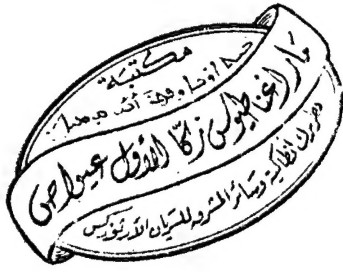 مكتبة
مار اغناطيوس زكا الأول عيواص
بطريرك انطاكية وسائر المشرق للسريان الأرثوذكس